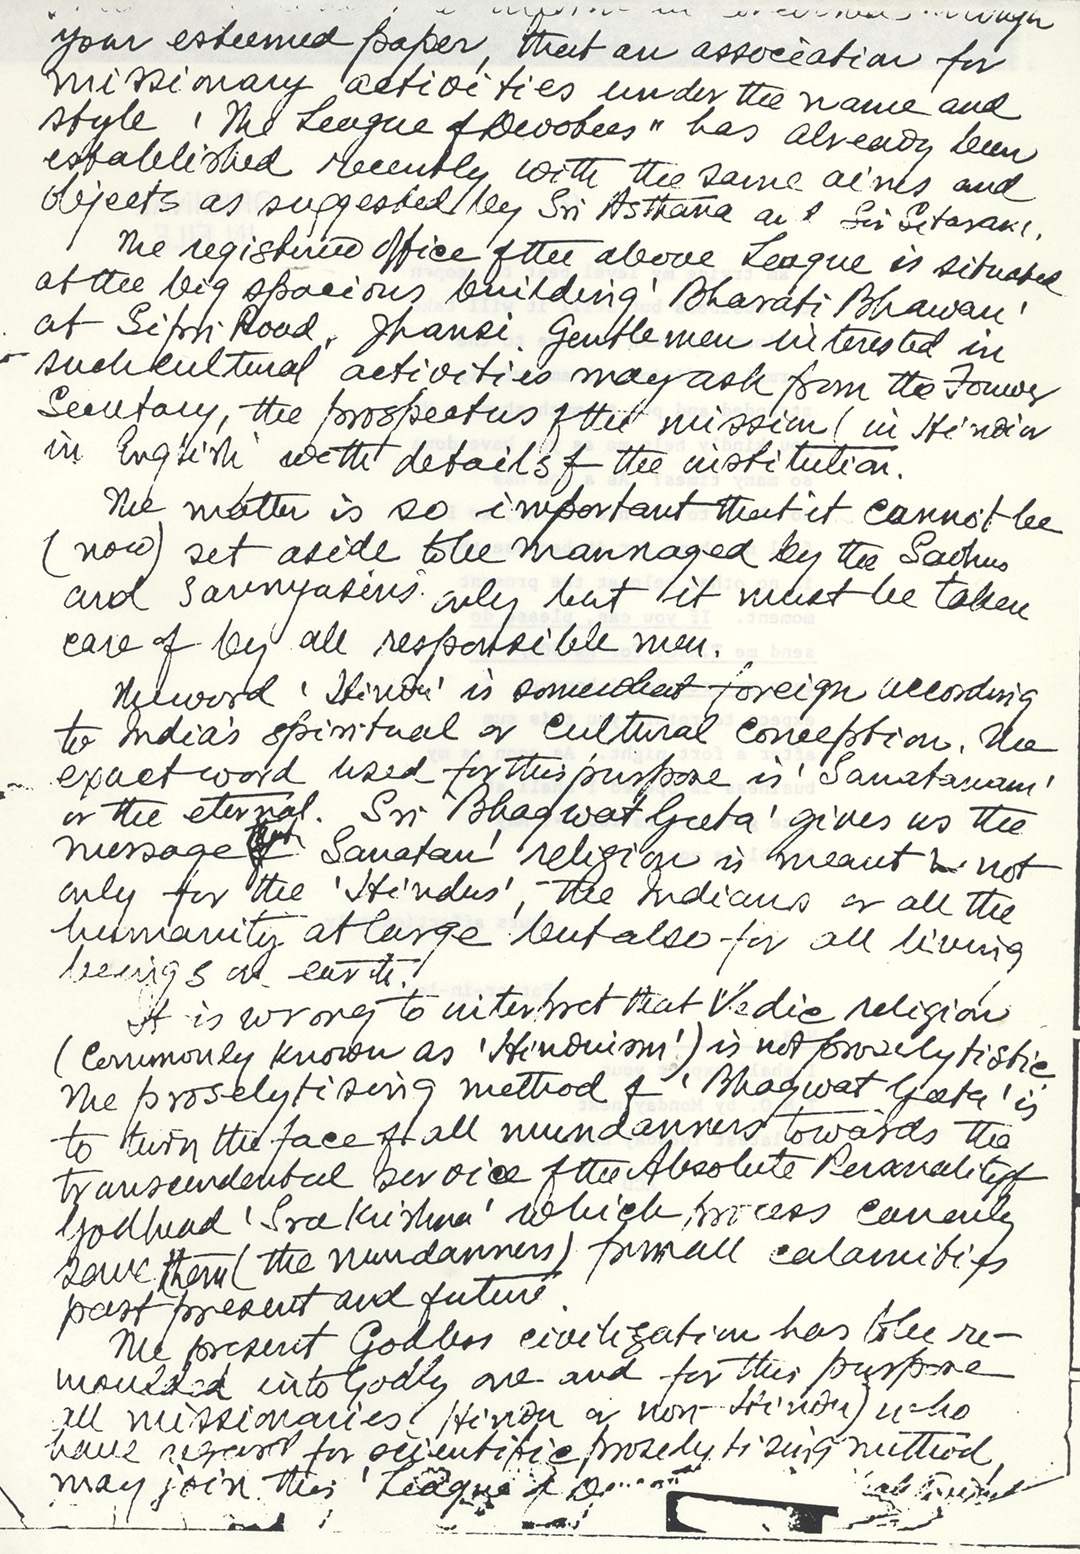 your esteemed paper, that an association for
missionary activities under the name and
style 'The League of Devotees" has already been
established recently with the same aims and
objects as suggested by Sri Asthana and Sri Sitaram.
The registered office of the above League is situated
at the big spacious building 'Bharati Bhawan'
at Sipri Road, Jhansi. Gentlemen interested in
such cultural activities may ask from the
Secretary, the prospectus of the mission (in Hindi or
in English with details of the institution.
The matter is so important that it cannot be
(now) set aside to be mannaged by the Sadhus
and Sannyasins only but it must be taken
care of by all responsible men.
The word 'Hindu' is somewhat foreign according
to India's spiritual or cultural conception. The
exact word used for this purpose is 'Sanatanam'
or the eternal. Sri 'Bhagwat Geeta' gives us the
message that 'Sanatan' religion is meant not
only for the 'Hindus', the Indians or all the
humanity at large but also for all living
beings on earth.
It is wrong to interpret that Vedic religion
(commonly known as 'Hinduism') is not proselytistic
The proselytising method of 'Bhagwat Geeta' is
to turn the face of all mundanners towards the
transcendental service of the Absolute Personality of
Godhead 'Sree Krishna' which process can only
save them (the mundanners) from all calamities
past present and future.
The present Godless civilization has to be re-
moulded into Godly one and for this purpose
all missionaries (Hindu or non-Hindu) who
have regard for scientific proselytising method,
may join this 'League of